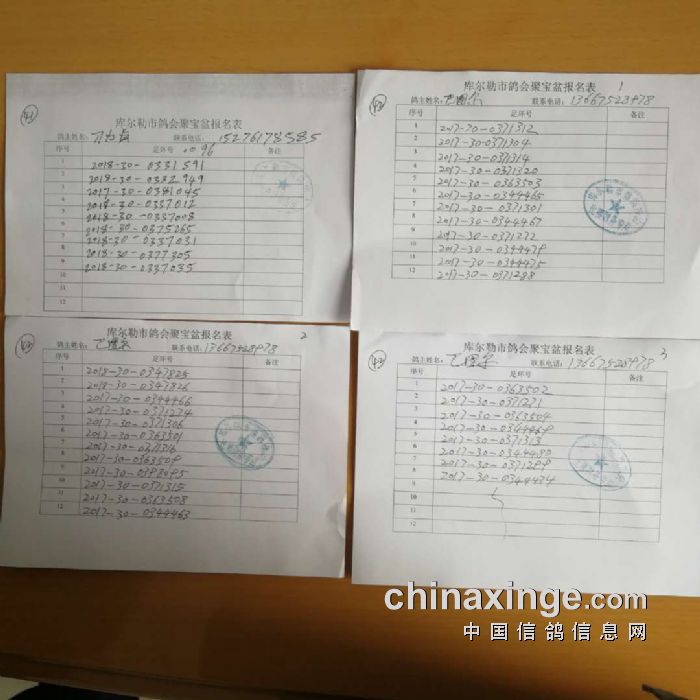 41
库尔勒市鸽会聚宝盆报名表
鸽主姓名: 联系电话: 15276178585
序号 足环号 备注
1 2018-30-0331591
2 2018-30-0332949
3 2017-30-0381045
4 2018-30-0337012
5 2018-30-0337008
6 2018-30-0375265
7 2018-30-0337031
8 2018-30-0377305
9 2018-30-0337035
10
11
12
42
1
库尔勒市鸽会聚宝盆报名表
鸽主姓名: 联系电话: 13667523978
序号 足环号 备注
1 2017-30-0371312
2 2017-30-0371304
3 2017-30-0371314
4 2017-30-0371320
5 2017-30-0363503
6 2017-30-0344465
7 2017-30-0371301
8 2017-30-0344467
9 2017-30-0371272
10 2017-30-0344479
11 2017-30-0344475
12 2017-30-0371298
2
库尔勒市鸽会聚宝盆报名表
鸽主姓名: 联系电话: 13667523978
序号 足环号 备注
1 2018-30-0347825
2 2018-30-0347826
3 2017-30-0344466
4 2017-30-0371274
5 2017-30-0371306
6 2017-30-0363501
7 2017-30-0371316
8 2017-30-0363509
9 2017-30-0198095
10 2017-30-0371315
11 2017-30-0363508
12 2017-30-0344463
3
库尔勒市鸽会聚宝盆报名表
鸽主姓名: 联系电话: 13667523978
序号 足环号 备注
1 2017-30-0363502
2 2017-30-0371271
3 2017-30-0363504
4 2017-30-0344469
5 2017-30-0371313
6 2017-30-0344480
7 2017-30-0371299
8 2017-30-0344474
9
10
11
12
chinaxinge.com
中国信鸽信息网